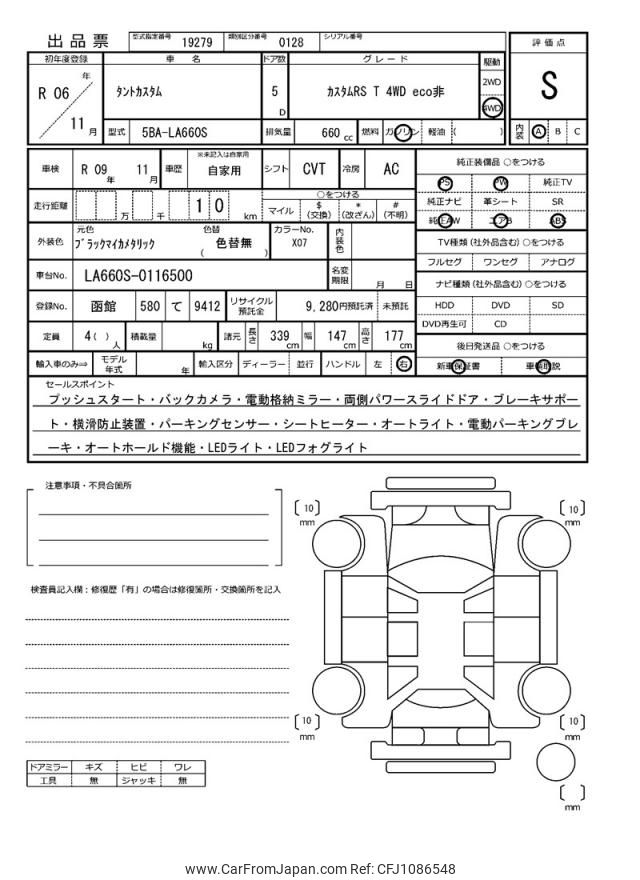 出品票
型式指定番号 19279 類別区分番号 0128 シリアル番号
評価点
S
内装 A B C
初年度登録 車名 ドア数 グレード 駆動
R 06 年 11 月
タントカスタム 5 D カスタムRS T 4WD eco非
2WD
4WD
型式 5BA-LA660S 排気量 660 cc 燃料 ガソリン 軽油 ( )
車検 R 09 年 11 月 車歴 ※未記入は自家用 自家用 シフト CVT 冷房 AC
走行距離 万 千 1 0 km
○をつける
マイル $(交換) *(改ざん) #(不明)
外装色 元色 ブラックマイカメタリック 色替 ( 色替無 ) カラーNo. X07 内装色
車台No. LA660S-0116500 名変期限 月 日
登録No. 函館 580 て 9412 リサイクル預託金 9,280円預託済 未預託
定員 4( )人 積載量 kg 諸元 長さ 339cm 幅 147cm 高さ 177cm
輸入車のみ⇒ モデル年式 年 輸入区分 ディーラー・並行 ハンドル 左・右
純正装備品 ○をつける
PS PW 純正TV
純正ナビ 革シート SR
純正AW エアB ABS
TV種類 (社外品含む) ○をつける
フルセグ ワンセグ アナログ
ナビ種類 (社外品含む) ○をつける
HDD DVD SD
DVD再生可 CD
後日発送品 ○をつける
新車保証書 車輌取説
セールスポイント
プッシュスタート・バックカメラ・電動格納ミラー・両側パワースライドドア・ブレーキサポー
ト・横滑防止装置・パーキングセンサー・シートヒーター・オートライト・電動パーキングブレ
ーキ・オートホールド機能・LEDライト・LEDフォグライト
注意事項・不具合箇所
検査員記入欄：修復歴「有」の場合は修復箇所・交換箇所を記入
ドアミラー キズ ヒビ ワレ
工具 無 ジャッキ 無
〔 10 〕 mm
〔 10 〕 mm
〔 10 〕 mm
〔 10 〕 mm
〔 〕 mm
www.CarFromJapan.com Ref: CFJ1086548